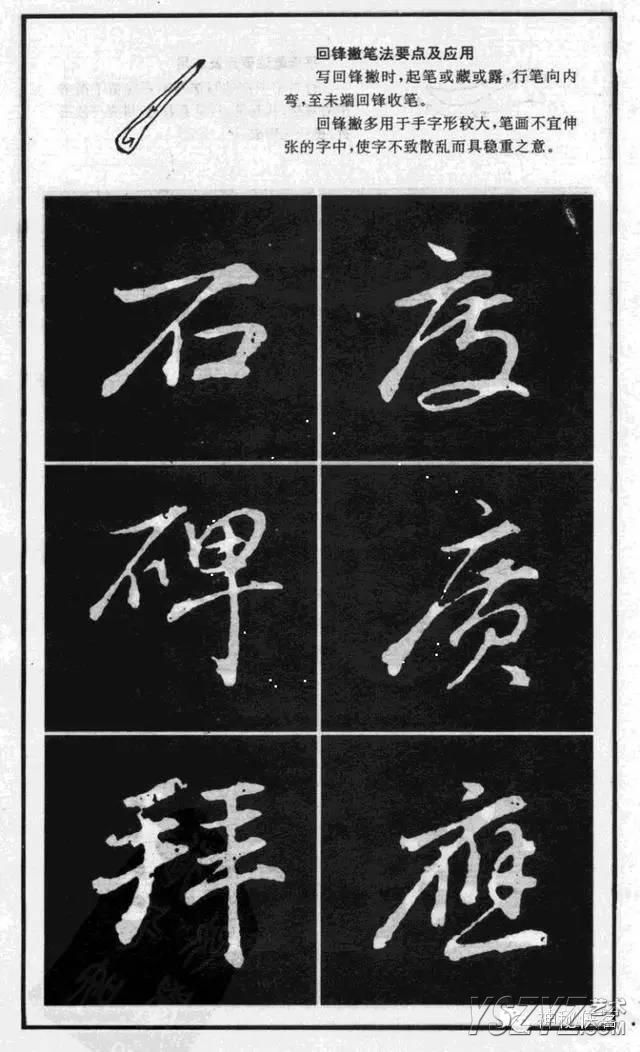 回锋撇笔法要点及应用
写回锋撇时，起笔或藏或露，行笔向内
弯，至未端回锋收笔。
回锋撇多用于手字形较大，笔画不宜伸
张的字中，使字不致散乱而具稳重之意。
石 度
碑 广
拜 應
YSZYZ艺术